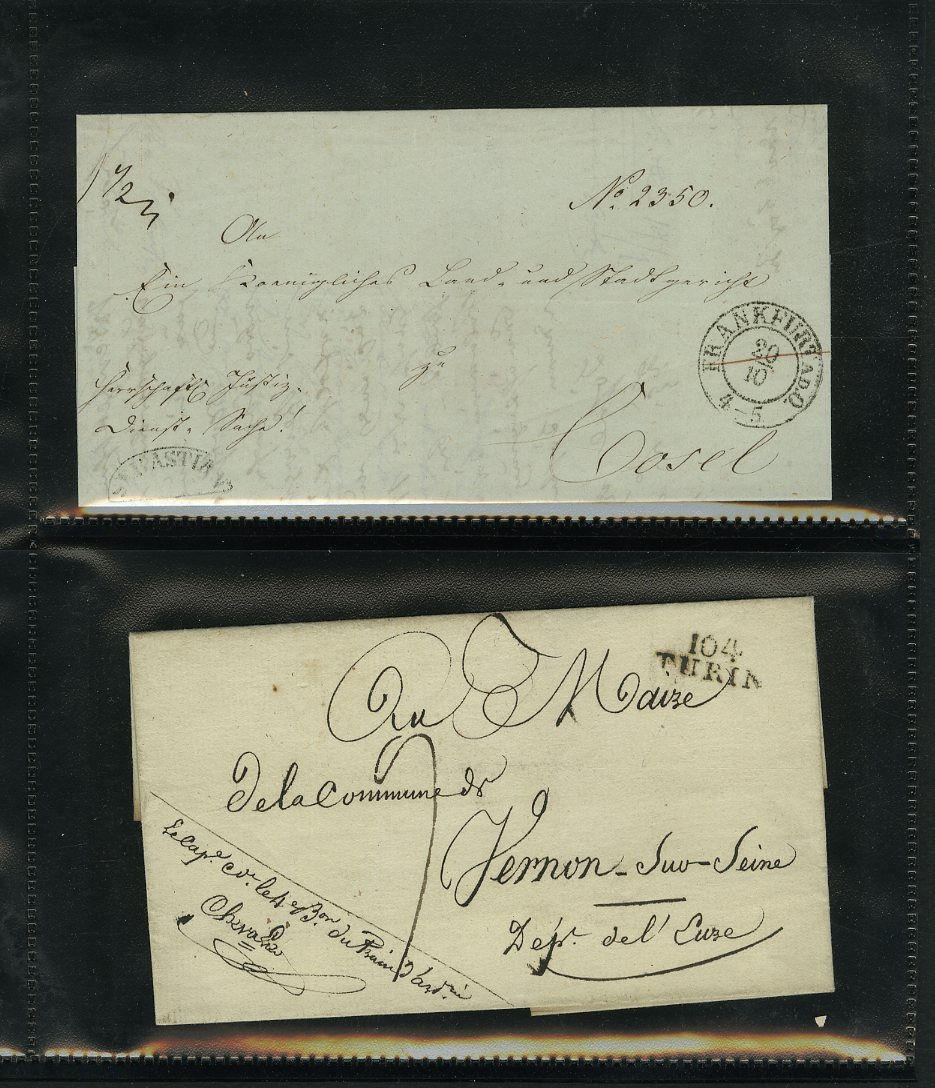 1 1/2
No. 2350.
An
Ein Koenigliches Land- und Stadtgericht
zu
Cosel
Herrschaftl. Justiz-
Dienst-Sache!
FRANKFURT A.D.O.
20
10
4-5
104
TURIN
Au Maire
De la Commune de
Vernon-Sur-Seine
Depr. de l'Eure
Le Cape. du Train d'art.